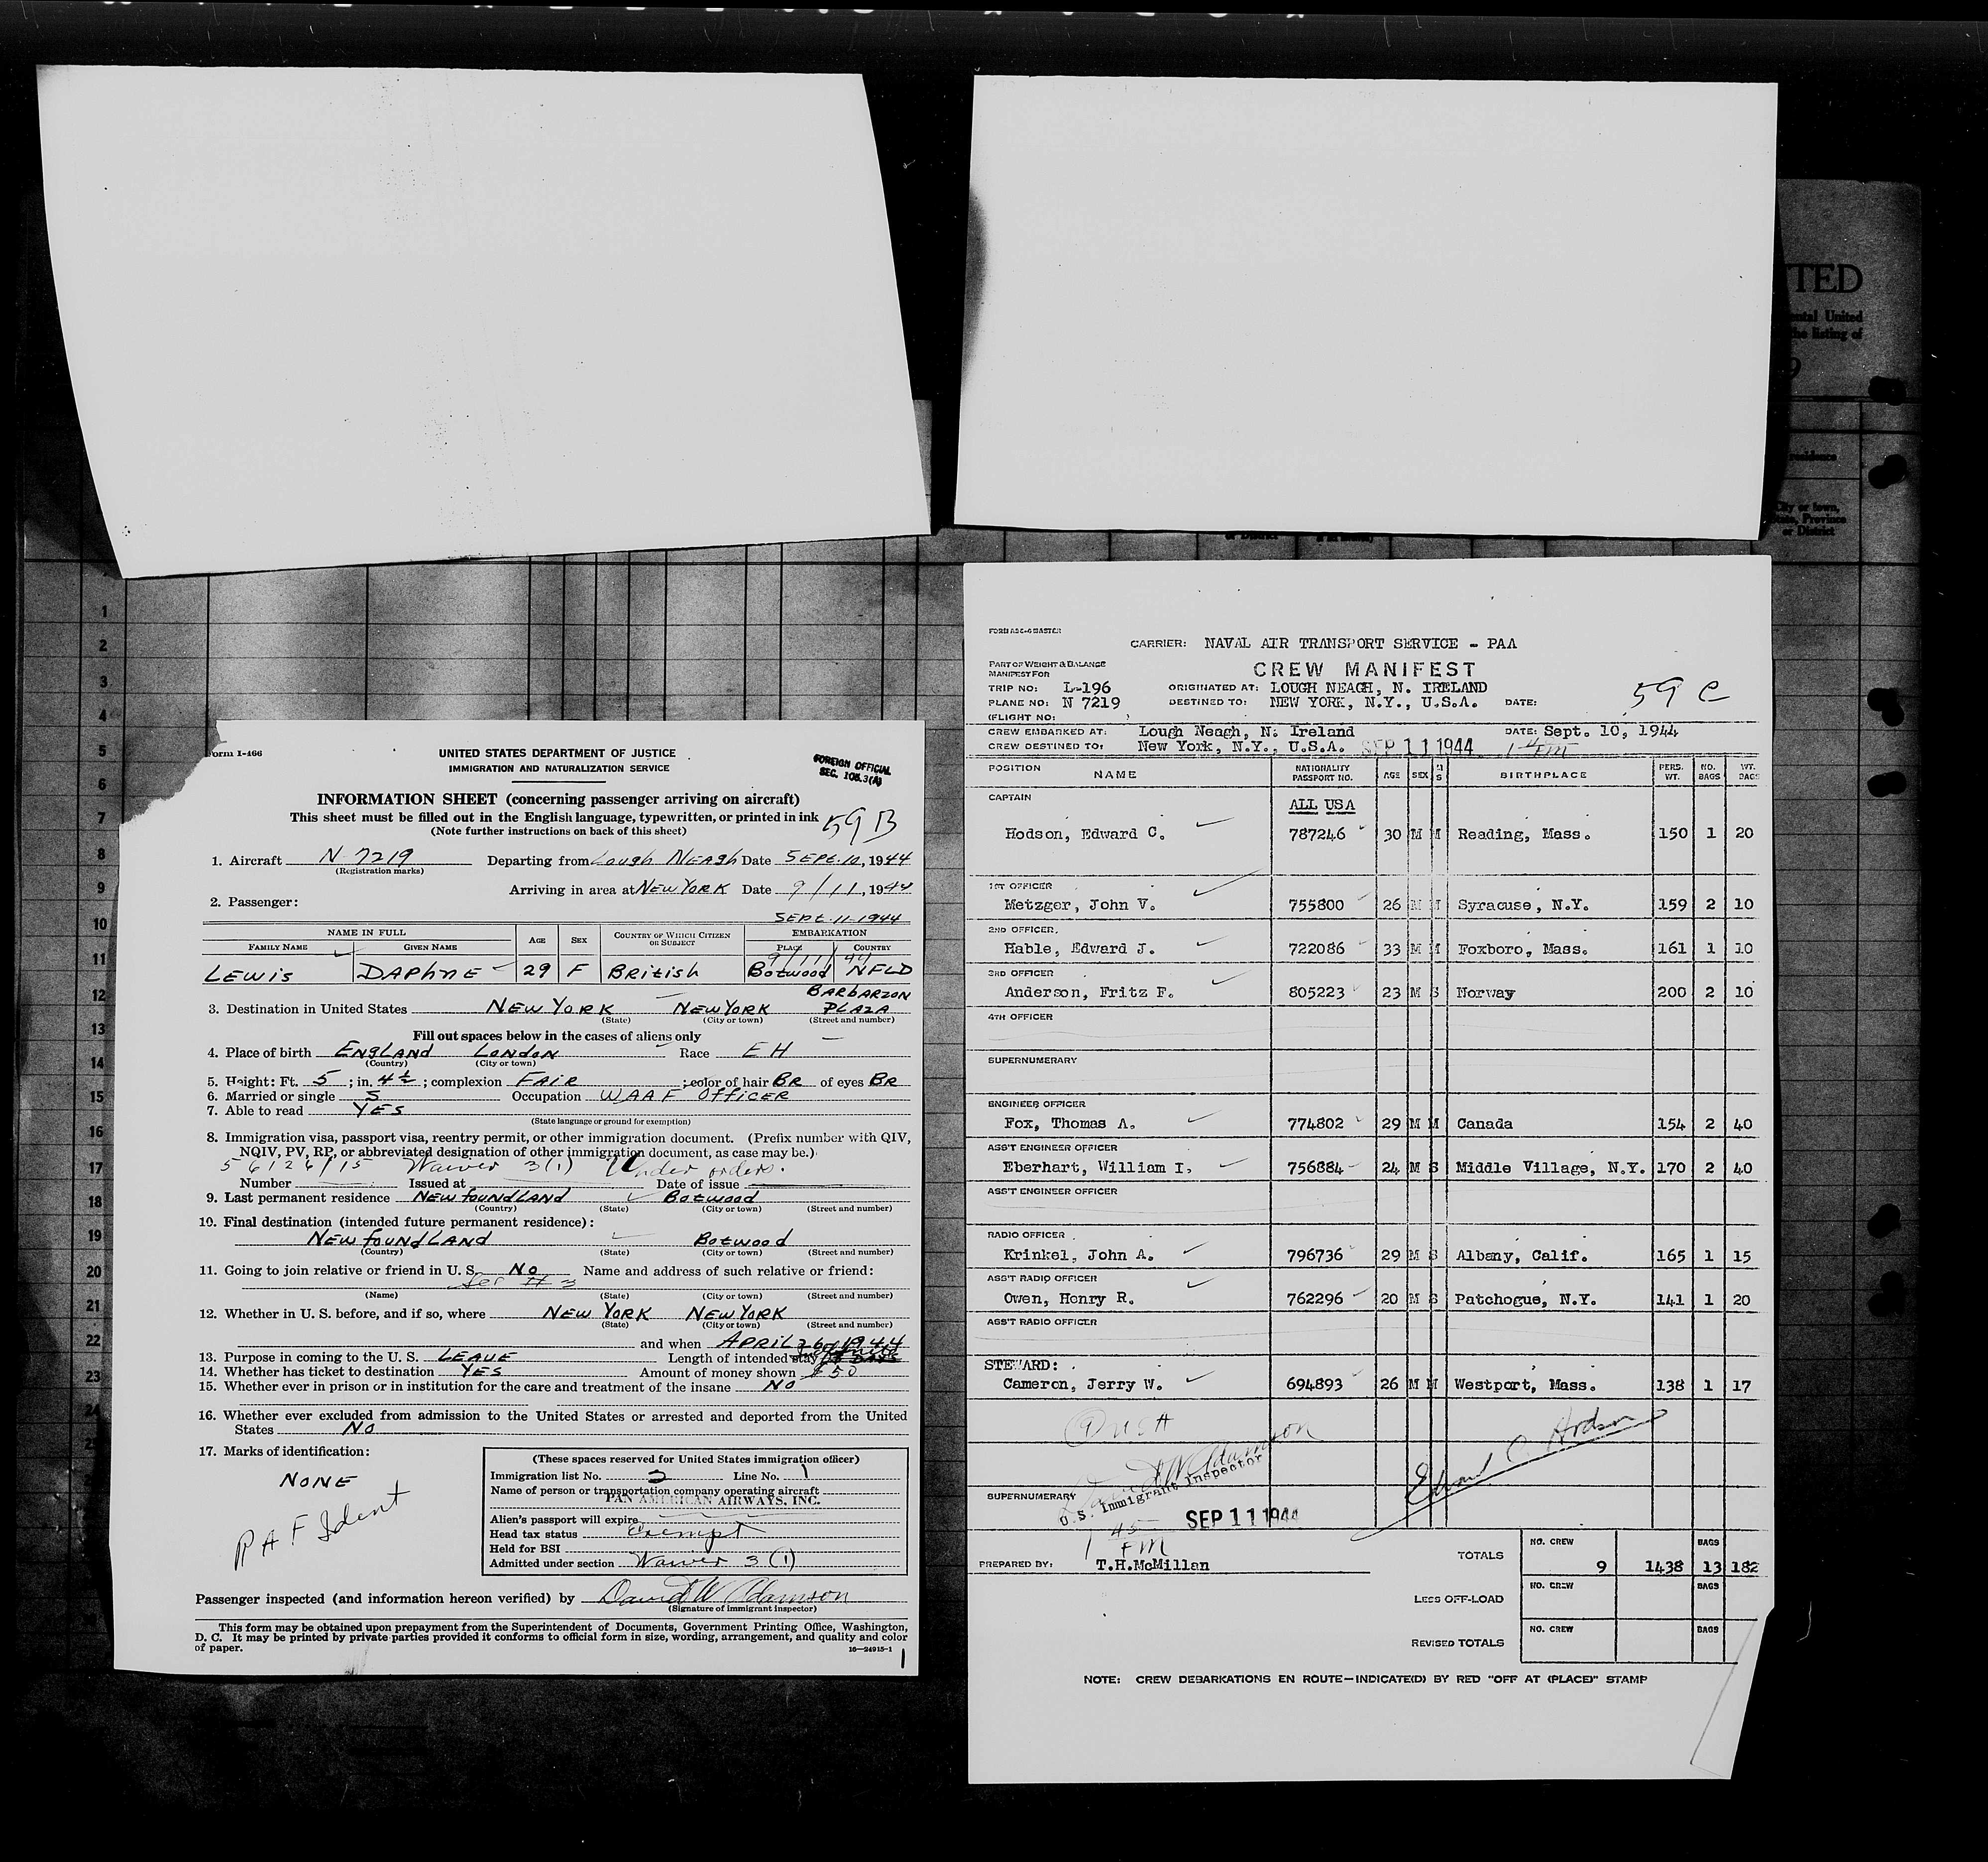 TED
ental United
the listing of
9
City or town,
State, Province
or District
1
2
3
4
5
6
7
8
9
10
11
12
13
14
15
16
17
18
19
20
21
22
23
24
Form I-466
UNITED STATES DEPARTMENT OF JUSTICE
IMMIGRATION AND NATURALIZATION SERVICE
FOREIGN OFFICIAL
SEC. 108.3(A)
INFORMATION SHEET (concerning passenger arriving on aircraft)
This sheet must be filled out in the English language, typewritten, or printed in ink
(Note further instructions on back of this sheet)
59 B
1. Aircraft N-7219 Departing from Lough Neagh Date SEPT. 10, 1944
(Registration marks)
Arriving in area at NEW YORK Date 9/11, 1944
2. Passenger:
SEPT. 11-1944
NAME IN FULL AGE SEX COUNTRY OF WHICH CITIZEN OR SUBJECT EMBARKATION
FAMILY NAME GIVEN NAME PLACE COUNTRY
9/11/44
LEWIS DAPHNE 29 F BRITISH Botwood NFLD
3. Destination in United States NEW YORK NEW YORK BARBARZON PLAZA
(State) (City or town) (Street and number)
Fill out spaces below in the cases of aliens only
4. Place of birth ENGLAND LONDON Race EH
(Country) (City or town)
5. Height: Ft. 5; in. 4½; complexion FAIR; color of hair BR of eyes BR
6. Married or single S Occupation WAAF OFFICER
7. Able to read YES
(State language or ground for exemption)
8. Immigration visa, passport visa, reentry permit, or other immigration document. (Prefix number with QIV,
NQIV, PV, RP, or abbreviated designation of other immigration document, as case may be.)
56126/15 Waiver 3(1) Under orders.
Number Issued at Date of issue
9. Last permanent residence NEWFOUNDLAND Botwood
(Country) (State) (City or town) (Street and number)
10. Final destination (intended future permanent residence):
NEWFOUNDLAND Botwood
(Country) (State) (City or town) (Street and number)
11. Going to join relative or friend in U. S. NO Name and address of such relative or friend:
See # 3
(Name) (State) (City or town) (Street and number)
12. Whether in U. S. before, and if so, where NEW YORK NEW YORK
(State) (City or town) (Street and number)
and when APRIL 1944
13. Purpose in coming to the U. S. LEAVE Length of intended stay
14. Whether has ticket to destination YES Amount of money shown $50
15. Whether ever in prison or in institution for the care and treatment of the insane NO
16. Whether ever excluded from admission to the United States or arrested and deported from the United
States NO
17. Marks of identification:
NONE
RAF Ident
(These spaces reserved for United States immigration officer)
Immigration list No. 2 Line No. 1
Name of person or transportation company operating aircraft
PAN AMERICAN AIRWAYS, INC.
Alien's passport will expire
Head tax status exempt
Held for BSI
Admitted under section Waiver 3 (1)
Passenger inspected (and information hereon verified) by David W Adamson
(Signature of immigrant inspector)
This form may be obtained upon prepayment from the Superintendent of Documents, Government Printing Office, Washington,
D. C. It may be printed by private parties provided it conforms to official form in size, wording, arrangement, and quality and color
of paper. 16—24915-1
1
FORM ABC-6 MASTER
CARRIER: NAVAL AIR TRANSPORT SERVICE - PAA
PART OF WEIGHT & BALANCE
MANIFEST FOR
CREW MANIFEST
TRIP NO: L-196 ORIGINATED AT: LOUGH NEAGH, N. IRELAND
PLANE NO: N 7219 DESTINED TO: NEW YORK, N.Y., U.S.A. DATE:
59 C
(FLIGHT NO: )
CREW EMBARKED AT: Lough Neagh, N. Ireland DATE: Sept. 10, 1944
CREW DESTINED TO: New York, N.Y., U.S.A. SEP 11 1944
POSITION NAME NATIONALITY PASSPORT NO. AGE SEX M S BIRTHPLACE PERS. WT. NO. BAGS WT. BAGS
CAPTAIN ALL USA
Hodson, Edward C. 787246 30 M M Reading, Mass. 150 1 20
1ST OFFICER
Metzger, John V. 755800 26 M M Syracuse, N.Y. 159 2 10
2ND OFFICER,
Hable, Edward J. 722086 33 M M Foxboro, Mass. 161 1 10
3RD OFFICER
Anderson, Fritz F. 805223 23 M S Norway 200 2 10
4TH OFFICER
SUPERNUMERARY
ENGINEER OFFICER
Fox, Thomas A. 774802 29 M M Canada 154 2 40
ASS'T ENGINEER OFFICER
Eberhart, William I. 756884 24 M S Middle Village, N.Y. 170 2 40
ASS'T ENGINEER OFFICER
RADIO OFFICER
Krinkel, John A. 796736 29 M S Albany, Calif. 165 1 15
ASS'T RADIO OFFICER
Owen, Henry R. 762296 20 M S Patchogue, N.Y. 141 1 20
ASS'T RADIO OFFICER
STEWARD:
Cameron, Jerry W. 694893 26 M M Westport, Mass. 138 1 17
9 USA
David W Adamson
U.S. Immigrant Inspector
Edward C. Hodson
SUPERNUMERARY
SEP 11 1944
1 45 PM
PREPARED BY: T.H.McMillan
TOTALS NO. CREW 9 1438 BAGS 13 182
LESS OFF-LOAD NO. CREW BAGS
REVISED TOTALS NO. CREW BAGS
NOTE: CREW DEBARKATIONS EN ROUTE—INDICATE(D) BY RED "OFF AT (PLACE)" STAMP